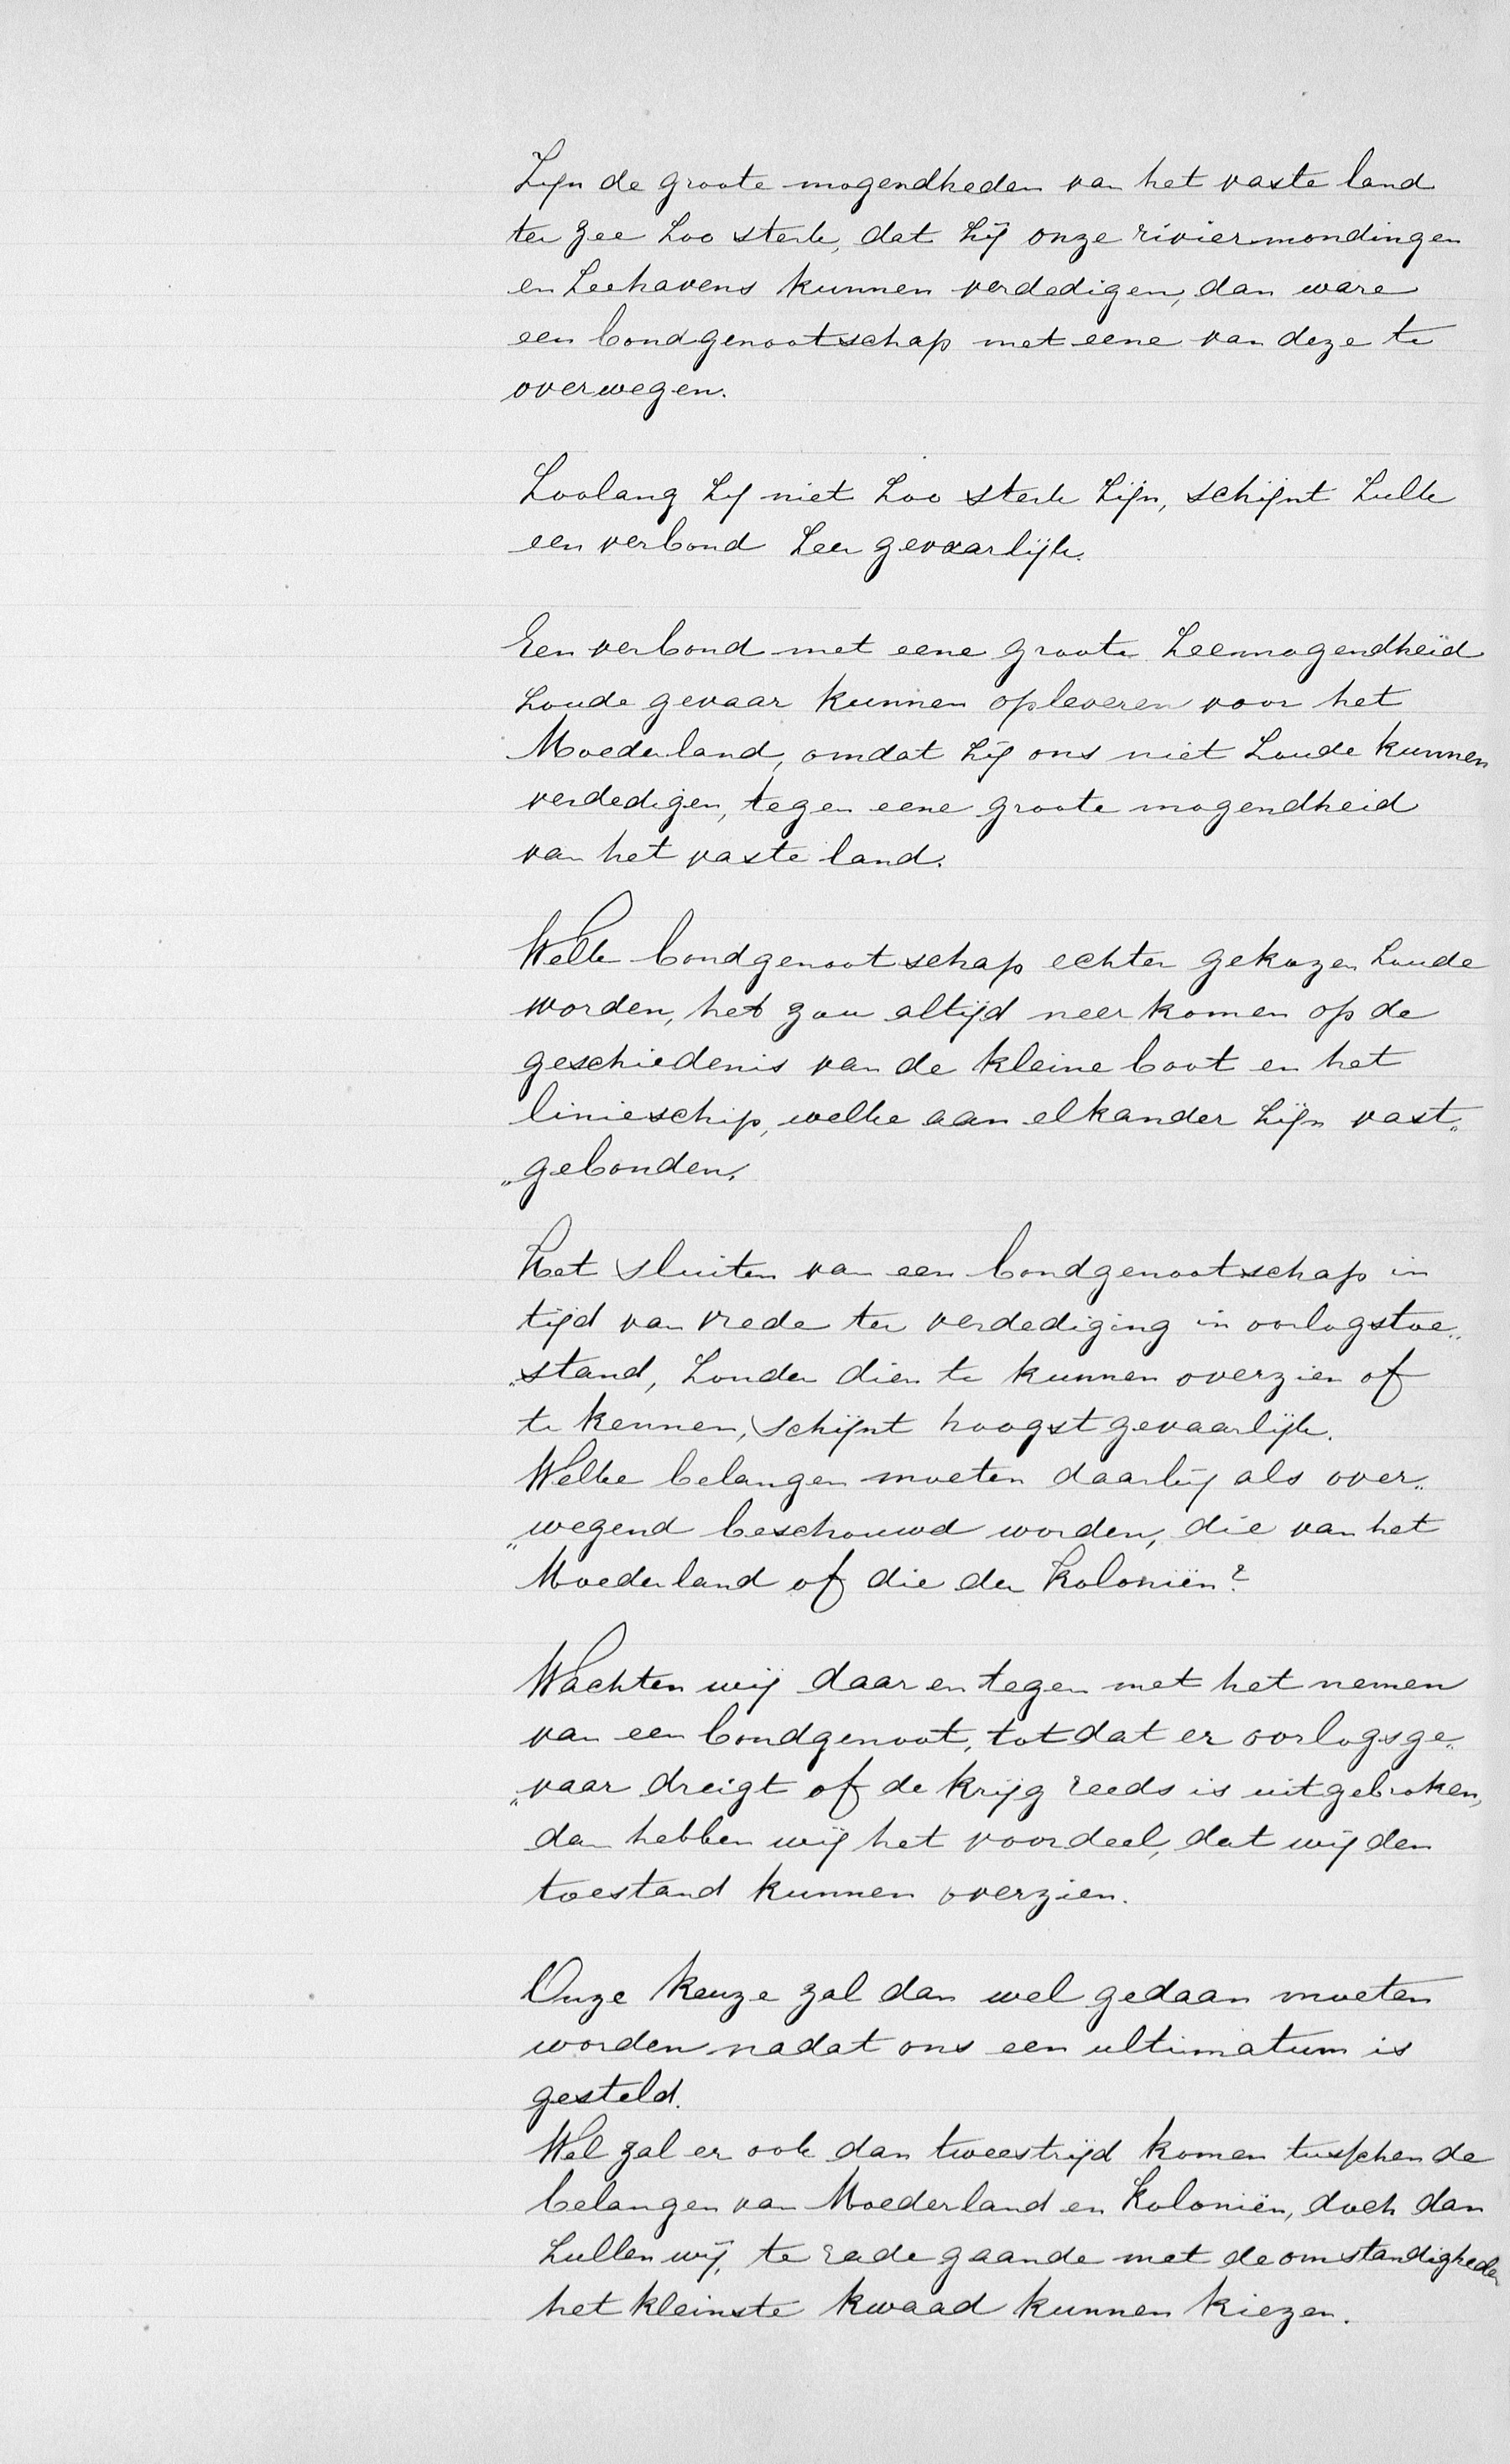 Zijn de groote mogendheden van het vaste land
ter zee zoo sterk, dat zij onze riviermondingen
en zeehavens kunnen verdedigen, dan ware
een bondgenootschap met eene van deze te
overwegen.
Zoolang zij niet zoo sterk zijn, schijnt zulk
een verbond zeer gevaarlijk.
Een verbond met eene groote zeemogendheid
zoude gevaar kunnen opleveren voor het
Moederland, omdat zij ons niet zoude kunnen
verdedigen, tegen eene groote mogendheid
van het vaste land.
Welk bondgenootschap echter gekozen zoude
worden, het zou altijd neerkomen op de
geschiedenis van de kleine boot en het
linieschip, welke aan elkander zijn vast„
„gebonden.
Het sluiten van een bondgenootschap in
tijd van vrede ter verdediging in oorlogstoe„
„stand, zonder dien te kunnen overzien of
te kennen, schijnt hoogst gevaarlijk.
Welke belangen moeten daarbij als over„
„wegend beschouwd worden, die van het
Moederland of die der Koloniën?
Wachten wij daarentegen met het nemen
van een bondgenoot, totdat er oorlogsge„
„vaar dreigt of de krijg reeds is uitgebroken,
dan hebben wij het voordeel, dat wij den
toestand kunnen overzien.
Onze keuze zal dan wel gedaan moeten
worden nadat ons een ultimatum is
gesteld.
Wel zal er ook dan tweestrijd komen tusschen de
belangen van Moederland en Koloniën, doch dan
zullen wij, te rade gaande met de omstandigheden
het kleinste kwaad kunnen kiezen.